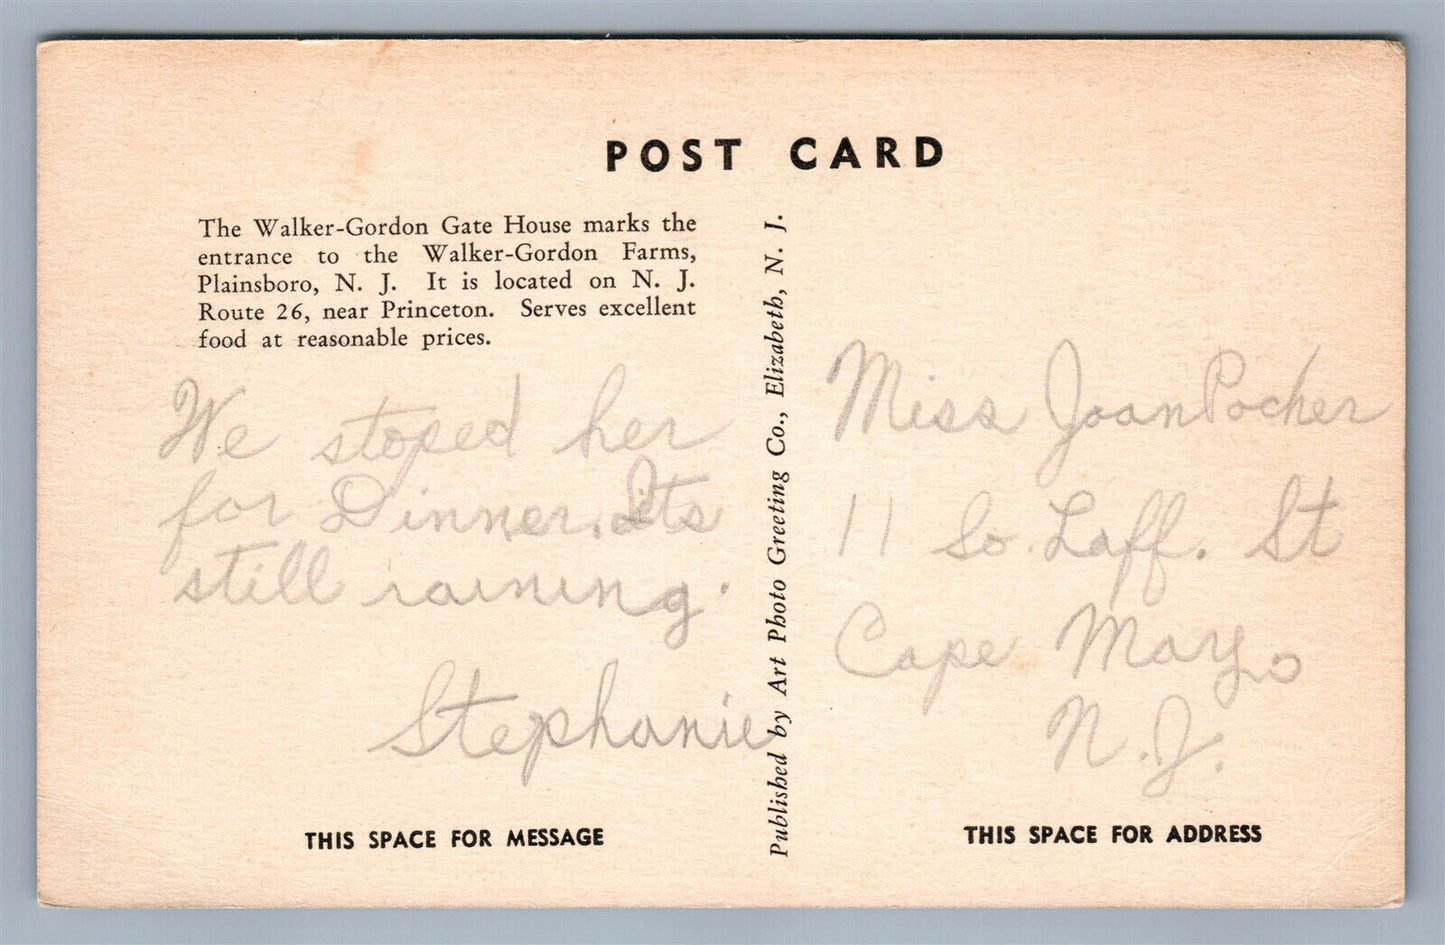 POST CARD
The Walker-Gordon Gate House marks the
entrance to the Walker-Gordon Farms,
Plainsboro, N. J. It is located on N. J.
Route 26, near Princeton. Serves excellent
food at reasonable prices.
We stoped her
for Dinner. Its
still raining.
Stephanie
THIS SPACE FOR MESSAGE
Published by Art Photo Greeting Co., Elizabeth, N. J.
Miss Joan Pocher
11 So. Laff. St
Cape May,
N.J.
THIS SPACE FOR ADDRESS